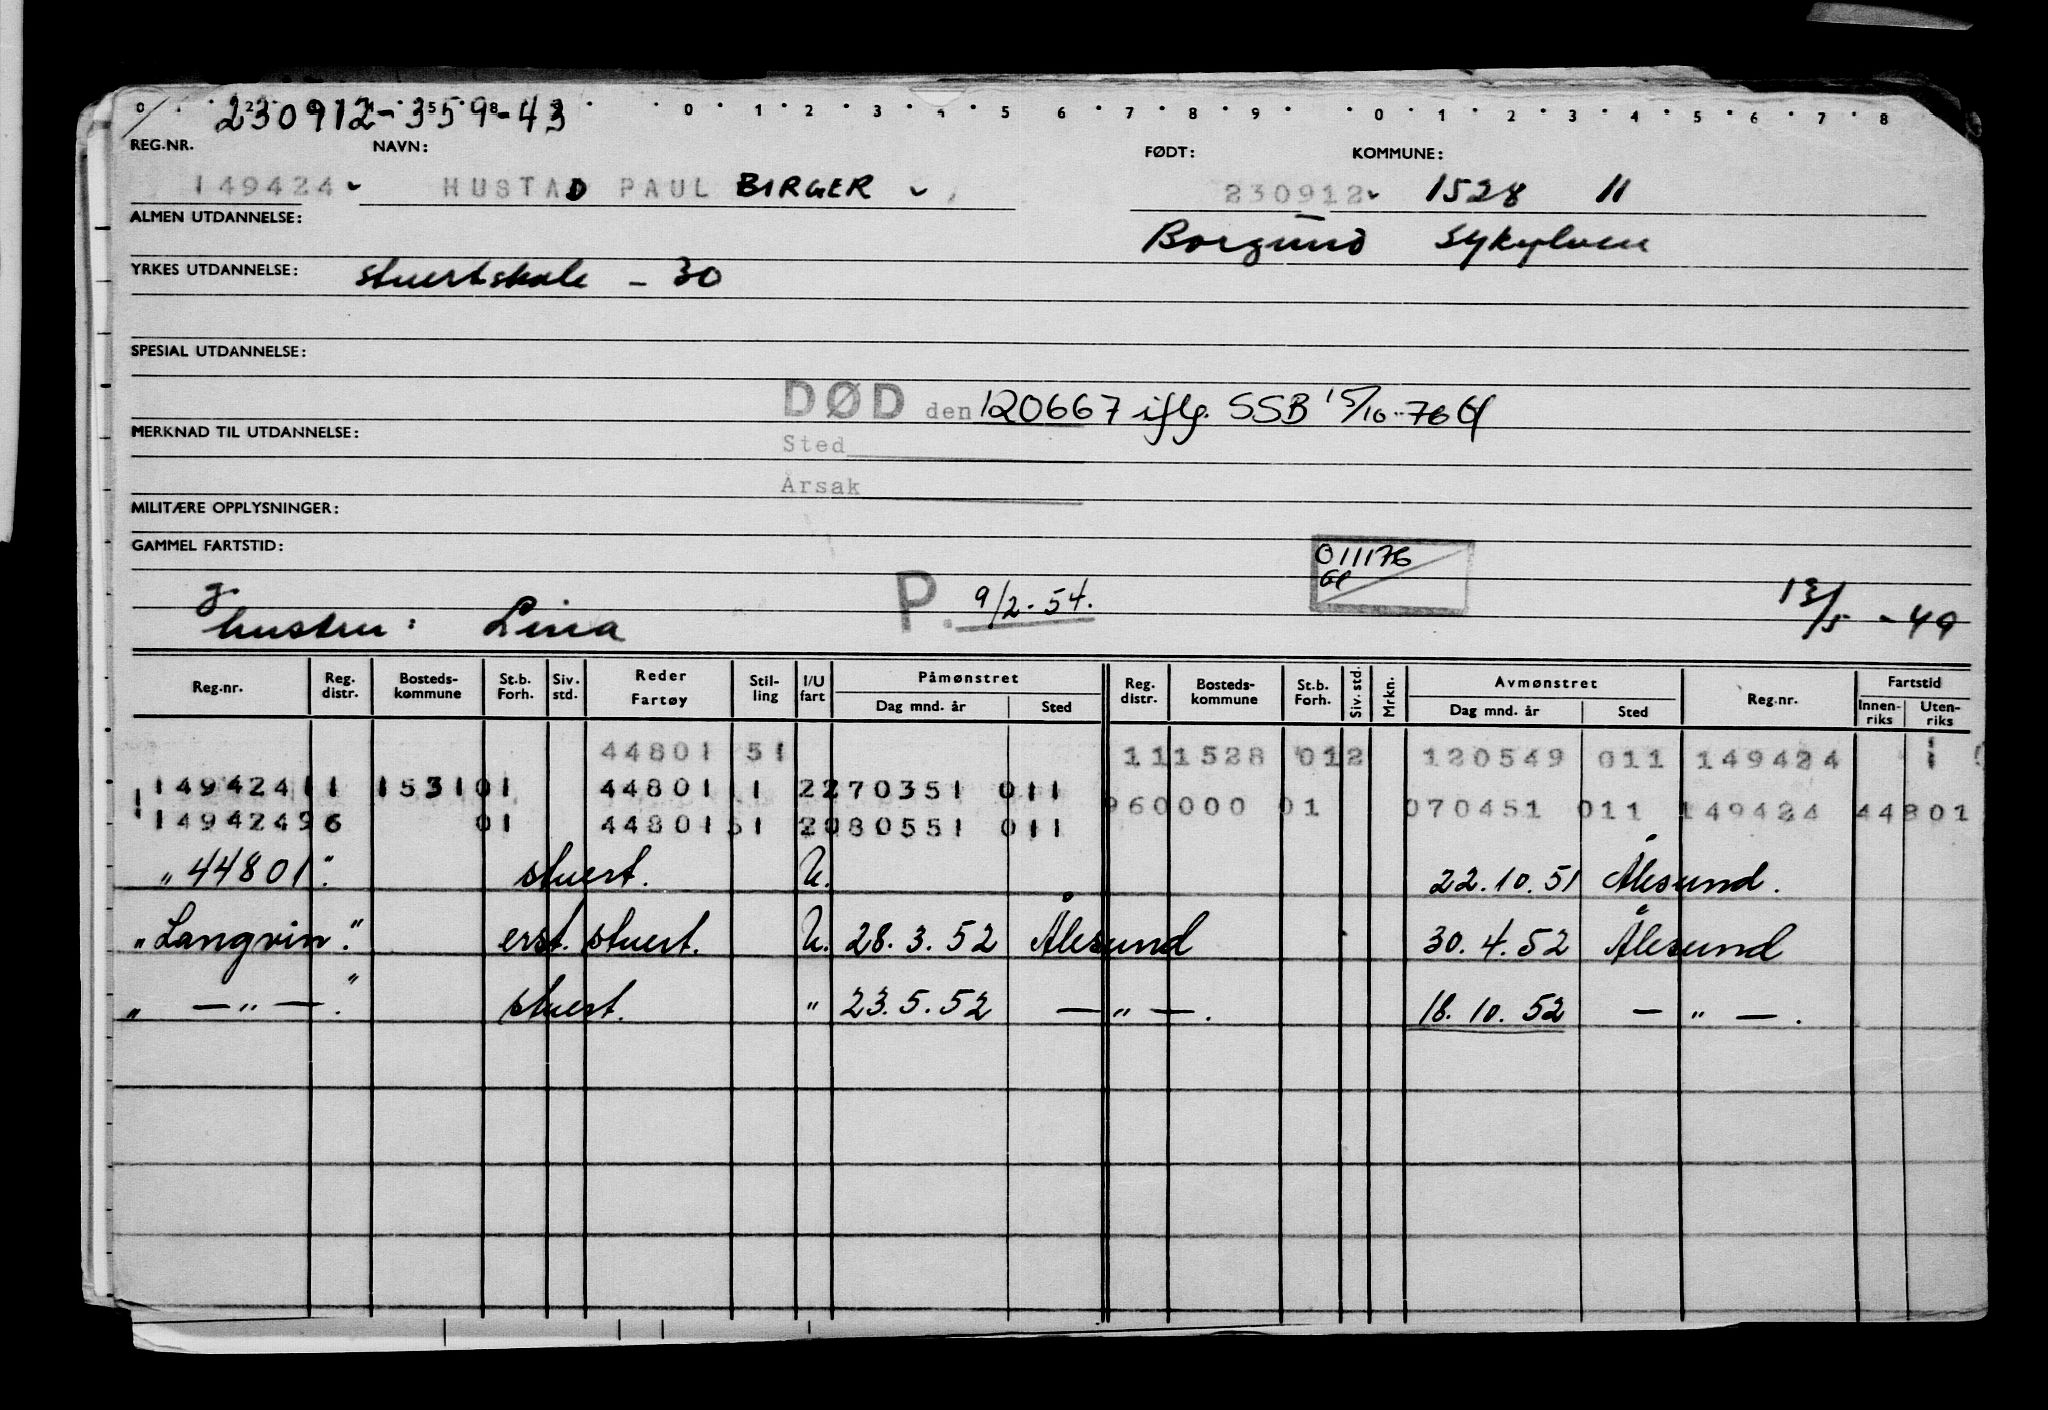 0 1 2 3 4 5 6 7 8 9 0 1 2 3 4 5 6 7 8
230912-359-43
REG.NR. NAVN: FØDT: KOMMUNE:
149424 HUSTAD PAUL BIRGER 230912 1528 11
ALMEN UTDANNELSE: Borgund Sykylven
YRKES UTDANNELSE: stuertskole - 30
SPESIAL UTDANNELSE:
DØD den 120667 iflg. SSB 15/10-76
MERKNAD TIL UTDANNELSE:
Sted
Årsak
MILITÆRE OPPLYSNINGER:
GAMMEL FARTSTID:
011176
g. P. 9/2-54. 13/5-49
hustru: Lina
Reg.nr. Reg. distr. Bosteds-kommune St.b. Forh. Siv. std. Reder Fartøy Stil-ling I/U fart Påmønstret Dag mnd. år Sted Reg. distr. Bosteds-kommune St.b. Forh. Siv. std. Mrkn. Avmønstret Dag mnd. år Sted Reg.nr. Fartstid Innen-riks Uten-riks
44801 51 111528 012 120549 011 149424 1
149424 11 1531 01 44801 1 2 270351 011
960000 01 070451 011 149424 44801
149424 96 01 44801 51 2 080551 011
"44801". stuert. U. 22.10.51 Ålesund.
"Langvin". erst. stuert. U. 28.3.52 Ålesund 30.4.52 Ålesund
" — " — ". stuert. " 23.5.52 — " —. 18.10.52 — " —.